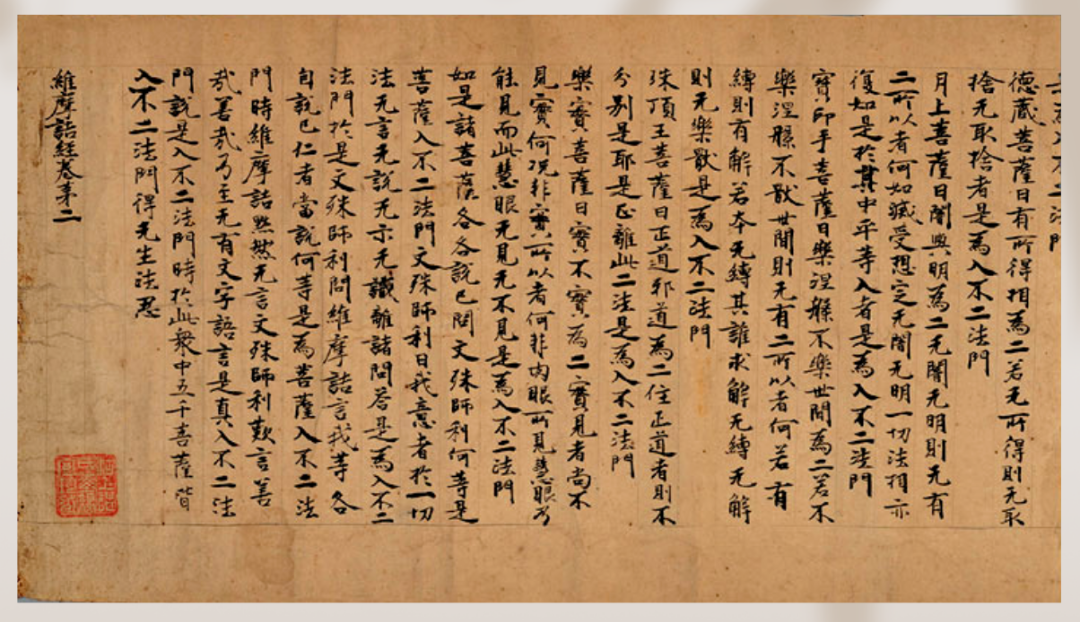 入不二法門
德藏菩薩曰有所得相為二若无所得則无取
捨无取捨者是為入不二法門
月上菩薩曰闇與明為二无闇无明則无有
二所以者何如滅受想定无闇无明一切法相亦
復如是於其中平等入者是為入不二法門
寶印手菩薩曰樂涅槃不樂世間為二若不
樂涅槃不猒世間則无有二所以者何若有
縛則有解若本无縛其誰求解无縛无解
則无樂猒是為入不二法門
珠頂王菩薩曰正道邪道為二住正道者則不
分別是耶是正離此二法是為入不二法門
樂實菩薩曰實不實為二實見者尚不
見實何況非實所以者何非肉眼所見慧眼乃
能見而此慧眼无見无不見是為入不二法門
如是諸菩薩各各說已問文殊師利何等是
菩薩入不二法門文殊師利曰我意者於一切
法无言无說无示无識離諸問荅是為入不二
法門於是文殊師利問維摩詰言我等各
自說已仁者當說何等是為菩薩入不二法
門時維摩詰默然无言文殊師利歎言善
哉善哉乃至无有文字語言是真入不二法
門說是入不二法門時於此眾中五千菩薩皆
入不二法門得无生法忍
維摩詰經卷第二